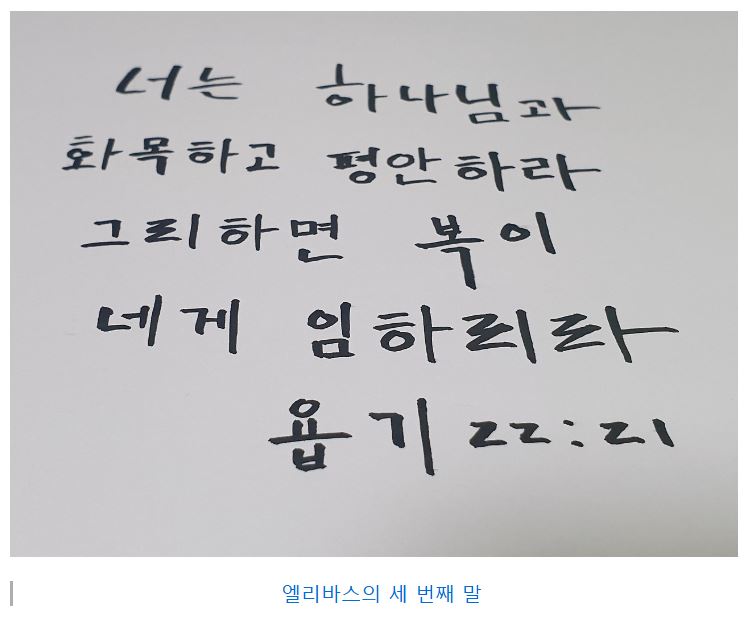 너는 하나님과
화목하고 평안하라
그리하면 복이
네게 임하리라
욥기 22:21
엘리바스의 세 번째 말